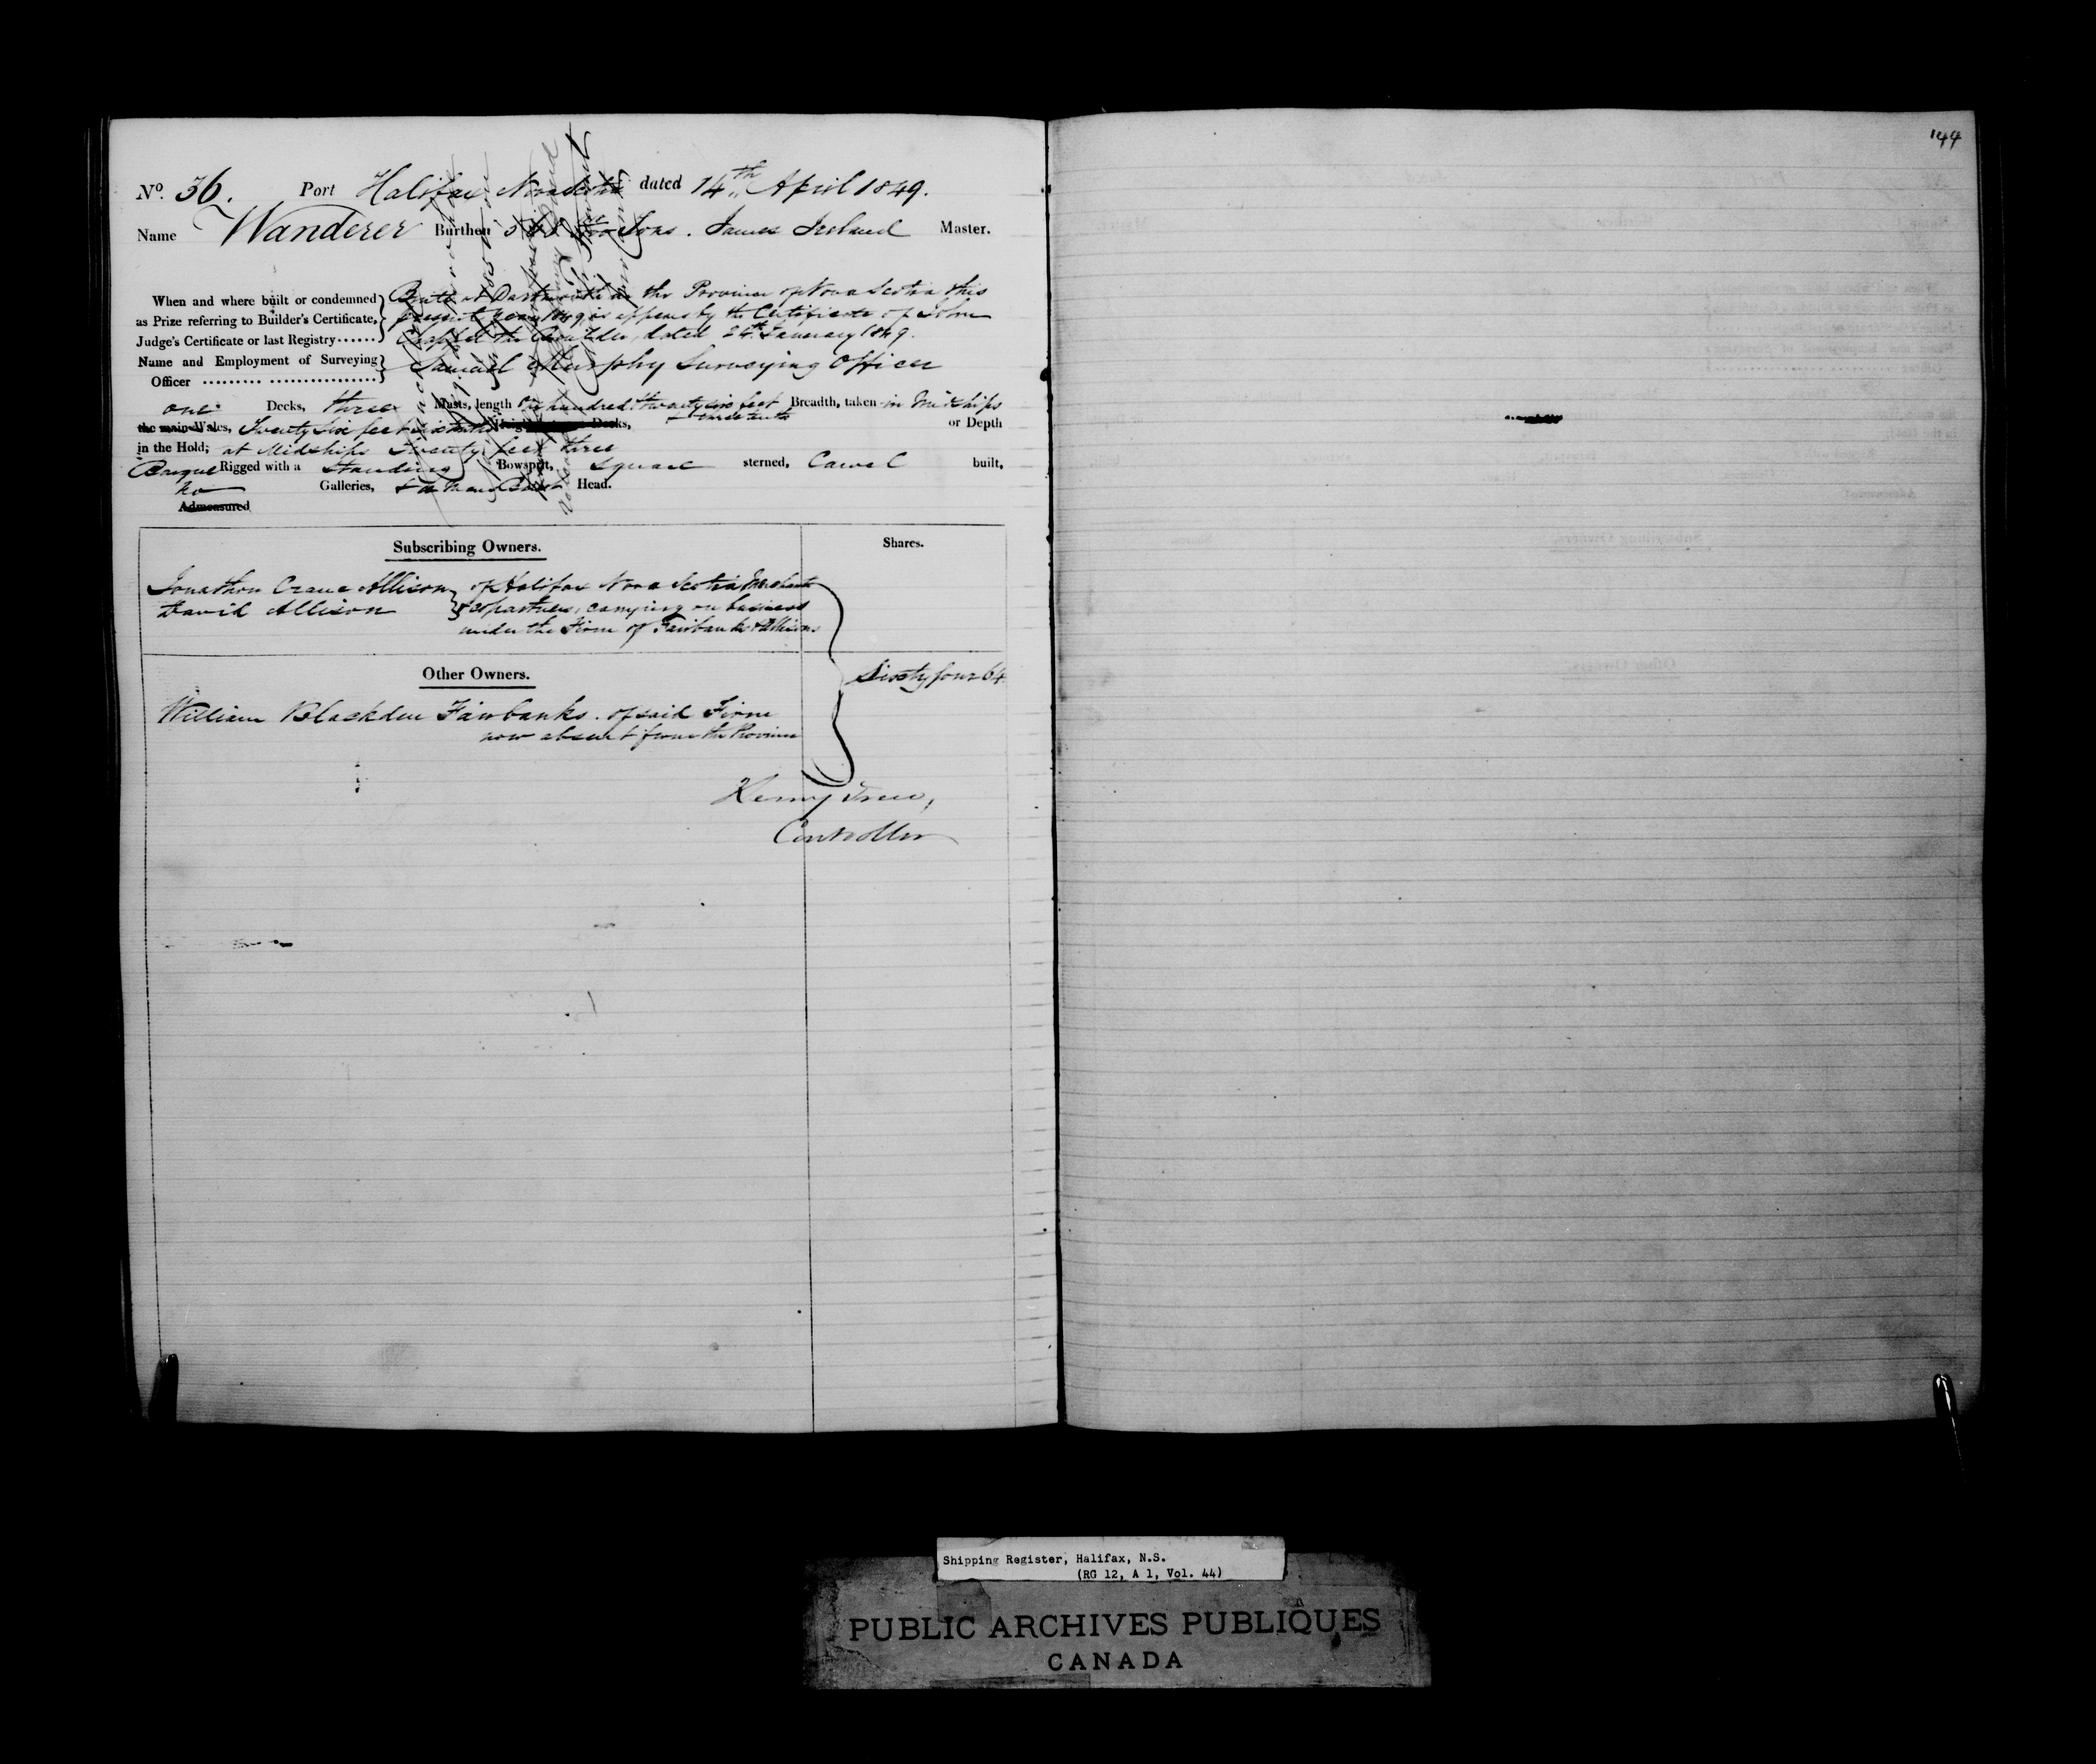 144
No. 36. Port Halifax Nova Scotia dated 14th April 1849.
Name Wanderer Burthen Tons. James Ireland Master.
When and where built or condemned
as Prize referring to Builder's Certificate,
Judge's Certificate or last Registry......
Built at Dartmouth in the Province of Nova Scotia this
present year 1849 as appears by the Certificate of John
Chappell the Builder, dated 24th January 1849.
Name and Employment of Surveying
Officer ......... ................
Samuel Murphy Surveying Officer
one Decks, three Masts, length One hundred & twenty six feet Breadth, taken in Midships
three tenths
the main Wales, Twenty six feet Decks, or Depth
in the Hold; at Midships Twenty feet three
Barque Rigged with a Standing Bowsprit, square sterned, Carvel built,
no Galleries, & a man Bust Head.
Admeasured
Subscribing Owners.
Shares.
Jonathon Crane Allison
David Allison
of Halifax Nova Scotia Merchants
& copartners, carrying on business
under the Firm of Fairbanks & Allisons
Other Owners.
Sixty four 64
William Blackden Fairbanks. of said Firm
now absent from the Province
Henry Trew,
Controller
Shipping Register, Halifax, N.S.
(RG 12, A 1, Vol. 44)
PUBLIC ARCHIVES PUBLIQUES
CANADA